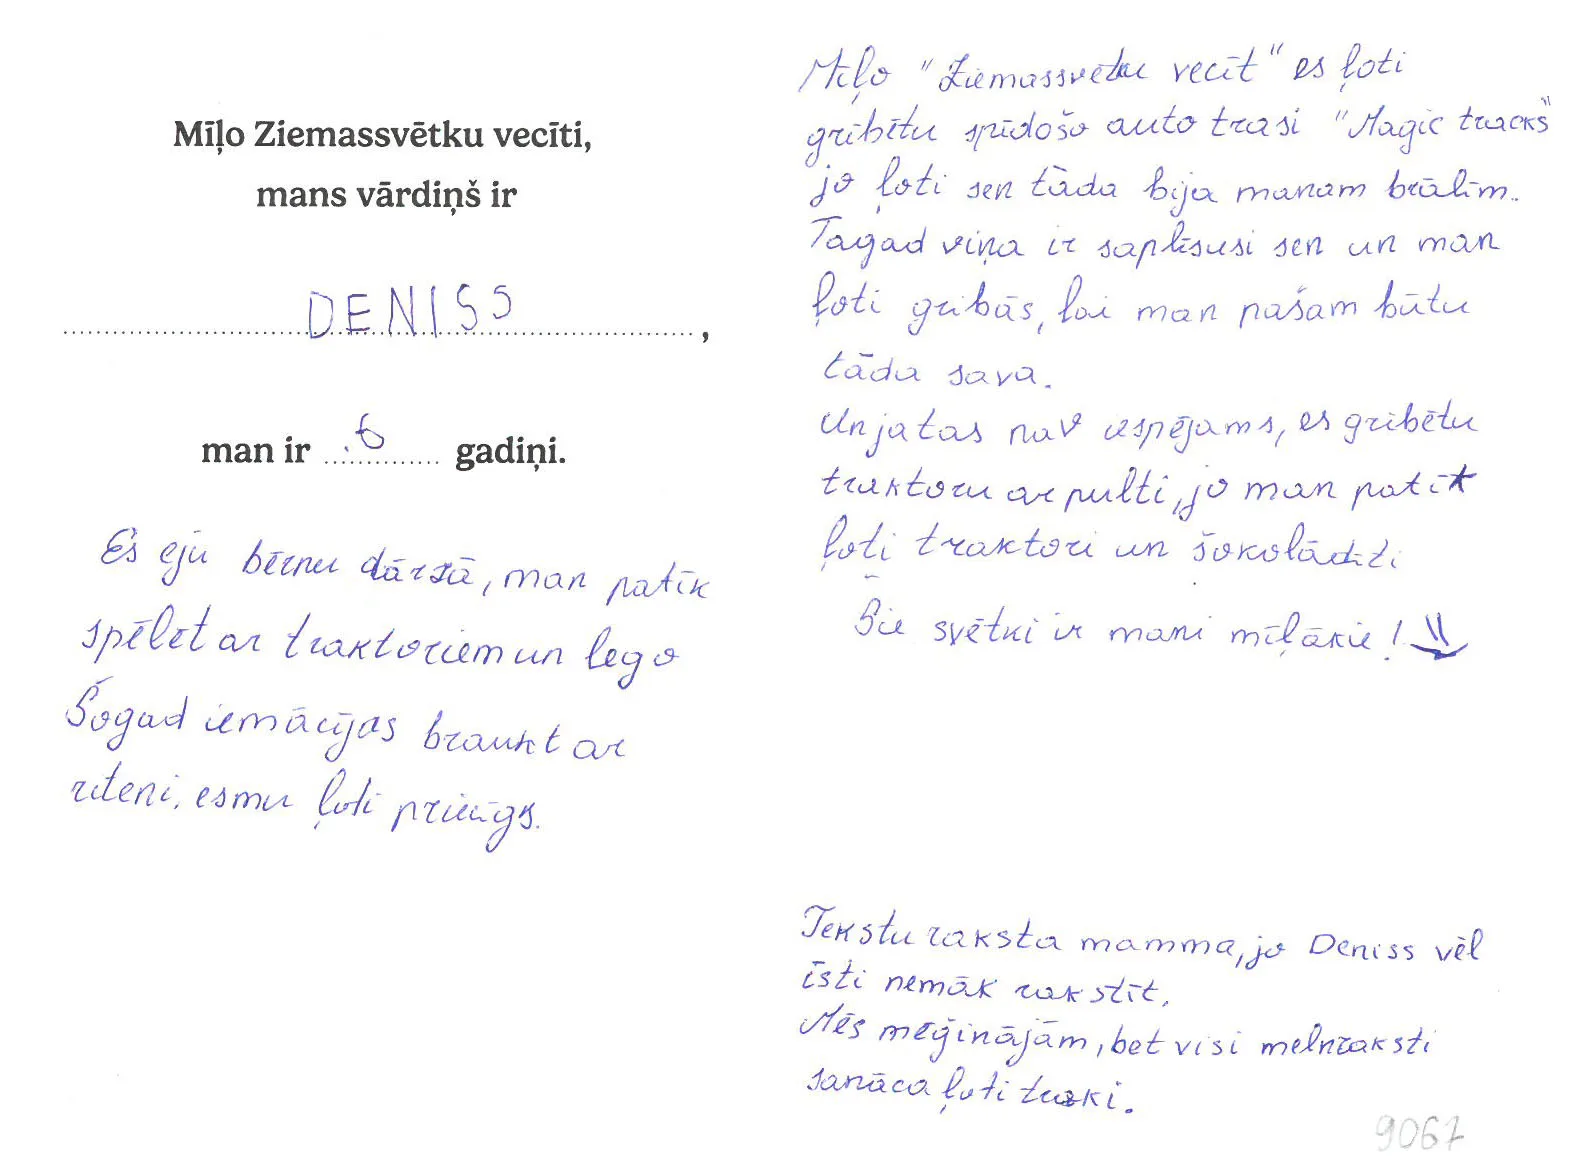 Mīļo Ziemassvētku vecīti,
mans vārdiņš ir
DENISS,
man ir 6 gadiņi.
Es eju bērnu dārzā, man patīk
spēlēt ar traktoriem un lego
Šogad iemācījas braukt ar
riteni, esmu ļoti priecīgs.
Mīļo "Ziemassvētku vecīt" es ļoti
gribētu spīdošo auto trasi "Magic tracks"
jo ļoti sen tāda bija manam brālim.
Tagad viņa ir saplīsusi sen un man
ļoti gribās, lai man pašam būtu
tāda sava.
Un ja tas nav iespējams, es gribētu
traktoru ar pulti, jo man patīk
ļoti traktori un šokolādīti
Šie svētki ir mani mīļākie!
Tekstu raksta mamma, jo Deniss vēl
īsti nemāk rakstīt.
Mēs mēģinājām, bet visi melnraksti
sanāca ļoti traki.
9067